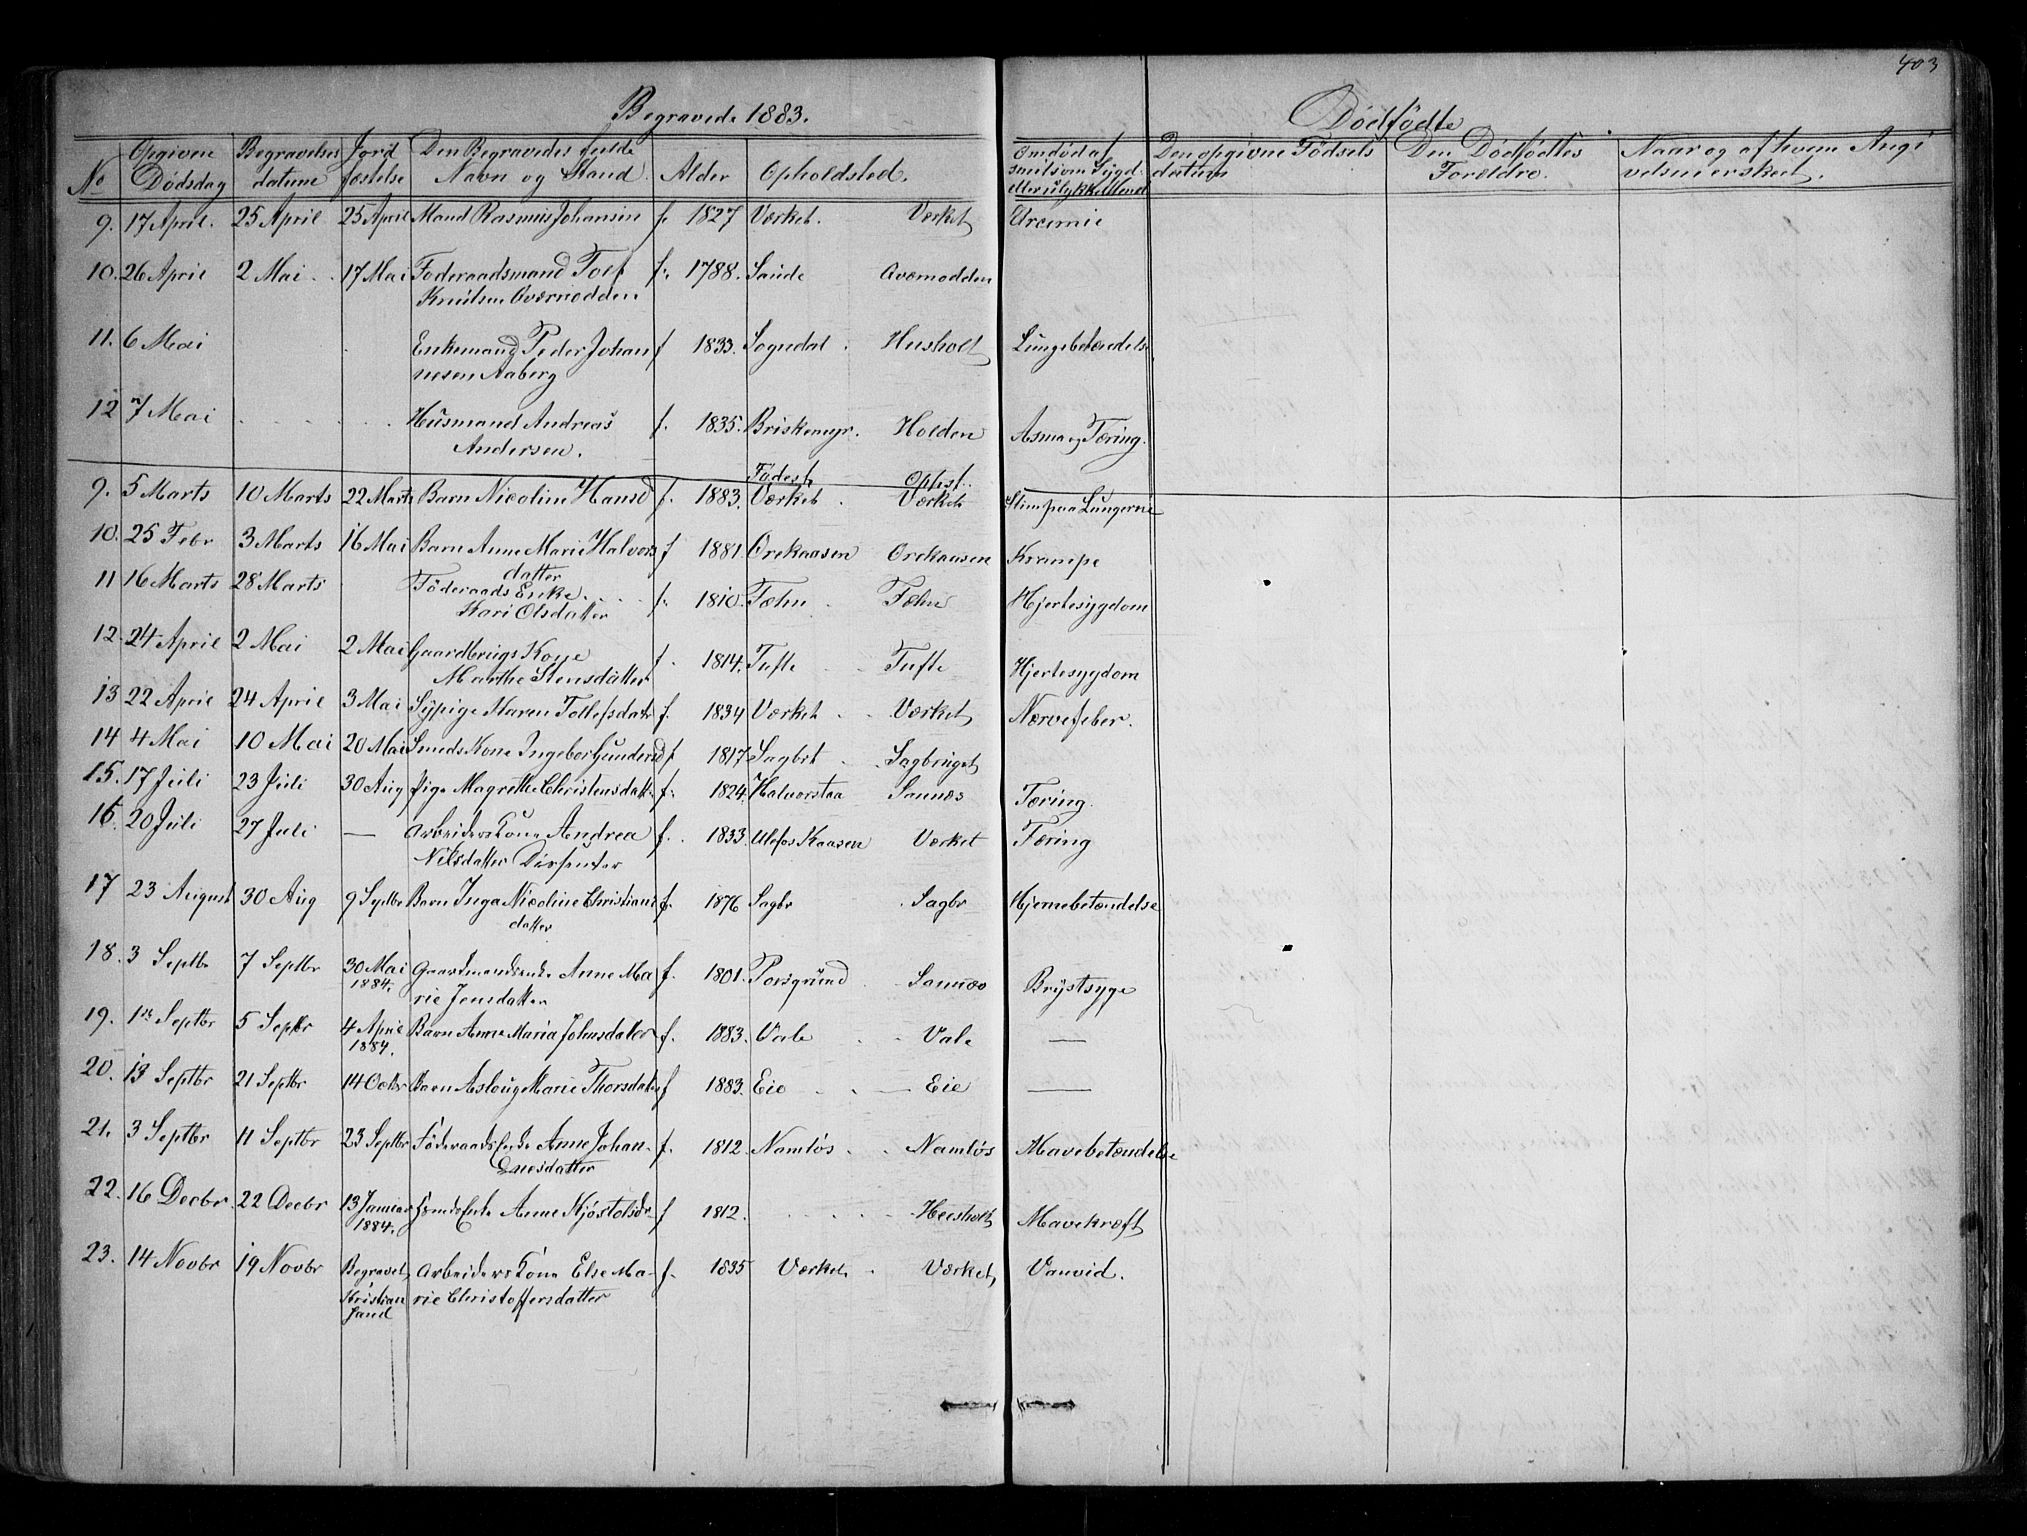 403
Begravede 1883.
Dødfødte
No
Opgiven Dødsdag
Begravelses datum
Jord fæstelse
Den Begravedes fulde Navn og Stand
Alder
Opholdsted.
Om død af smitsom Sygd. eller ulykkestilfæld
Den opgivne Fødsels datum
Den Dødfødtes Forældre.
Naar og af hvem Angivelsen er skeet.
9. 17 April. 25 April 25 April Mand Rasmus Johansen f. 1827 Værket. Værket Uræmie
10. 26 April 2 Mai 17 Mai Føderaadsmand Tolf f. 1788. Saude Aværnodden
Knutsen Øværnodden
11. 6 Mai Enkemand Peder Johan f 1833. Sognedal Husholt Lungebetændelse
nesen Aaberg
12 7 Mai Husmand Andreas f. 1835. Briskemyr. Holden Asma og Tæring.
Andersen.
Fødest. Ophst.
9. 5 Marts 10 Marts 22 Marts Barn Nicoline Hansd f. 1883. Værket Værket Slim paa Lungerne
10. 25 Febr 3 Marts 16 Mai Barn Anne Marie Halvors f 1881. Orekaasen Orekaasen Krampe
datter
11 16 Marts 28 Marts Føderaads Enke f. 1810. Fæhn Fæhn Hjertesygdom
Kari Olsdatter
12. 24 April 2 Mai 2 Mai Gaardbrugs Kone f. 1814. Tufte Tufte Hjertesygdom
Marthe Stensdatter
13 22 April 24 April 3 Mai Sypige Karen Tollefsdatr f. 1834 Værket Værket Nærvefeber.
14 4 Mai 10 Mai 20 Mai Smeds Kone Ingebor Gundersd f 1817 Sagbrt Sagbruget
15. 17 Juli 23 Juli 30 Aug Pige Magrethe Christensdatt. f. 1824. Halvorstaa Sannæs Tæring.
16. 20 Juli 27 Juli — Arbeiderskone Andrea f. 1833 Ulefos Kaasen Værket Tæring
Nilsdatter
17 23 August 30 Aug 9 Septbr Barn Inga Nicoline Christians f. 1876 Sagbr Sagbr Hjernebetændelse
datter
18. 3 Septbr 7 Septbr 30 Mai Gaardmandsenke Anne Ma f. 1801. Porsgrund Sannæs Brystsyge
1884. rie Jensdatter
19. 1ste Septbr 5 Septbr 4 April Barn Anne Maria Johnsdatter f. 1883. Vale Vale —
1884.
20. 13 Septbr 21 Septbr 14 Octbr Barn Aslaug Marie Thorsdatter f 1883. Eie — Eie —
21. 3 Septbr 11 Septbr 23 Septbr Føderaads Enke Anne Johan- f. 1812. Namløs Namløs Mavebetændelse
nesdatter
22. 16 Decbr 22 Decbr 13 Januar Enke Anne Kjøstolsdr f 1812. Heesholt Mavekræft
1884.
23. 14 Novbr 19 Novbr Begravet Arbeiderskone Else Ma- f. 1835 Værket Værket Vanvid.
Kristian rie Christoffersdatter
sand